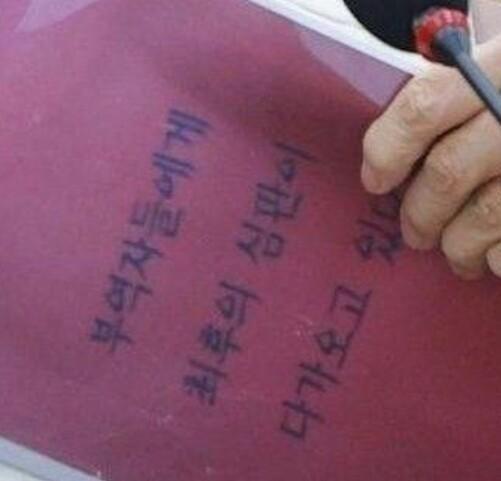 부역자들에게
최후의 심판이
다가오고 있다